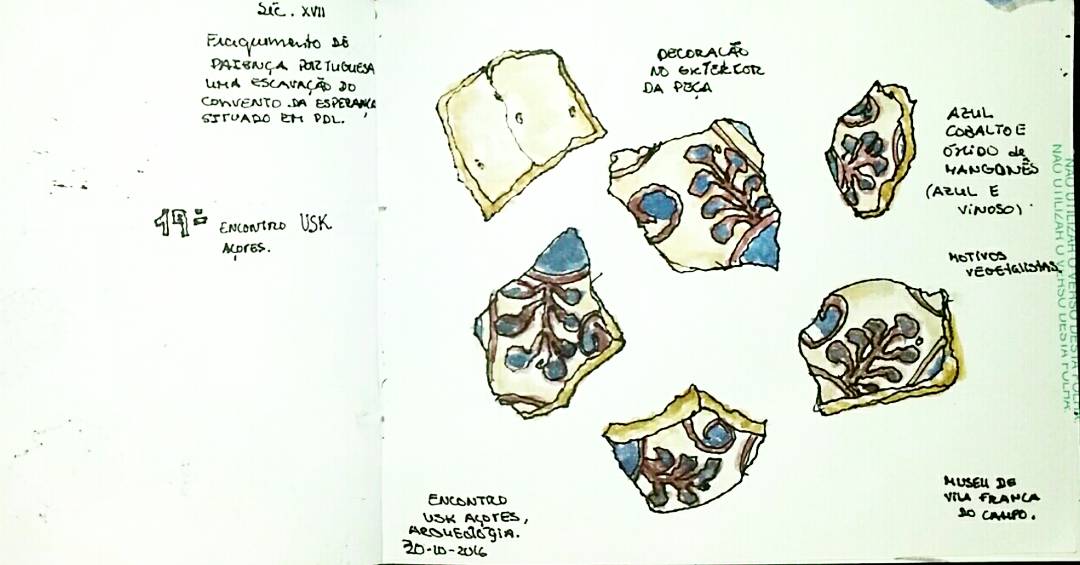 Séc. XVII
Fraguimento de
Faiença Portuguesa
uma escavação do
Convento da Esperança
situado em PDL.
19º encontro USK
Açores.
Decoração
no exterior
da peça
Azul
cobalto e
óxido de
manganês
(Azul e
vinoso)
Motivos
vegetalistas.
Encontro
USK Açores,
Arqueologia.
30-10-2016
Museu de
Vila Franca
do Campo.
NÃO UTILIZAR O VERSO DESTA FOLHA